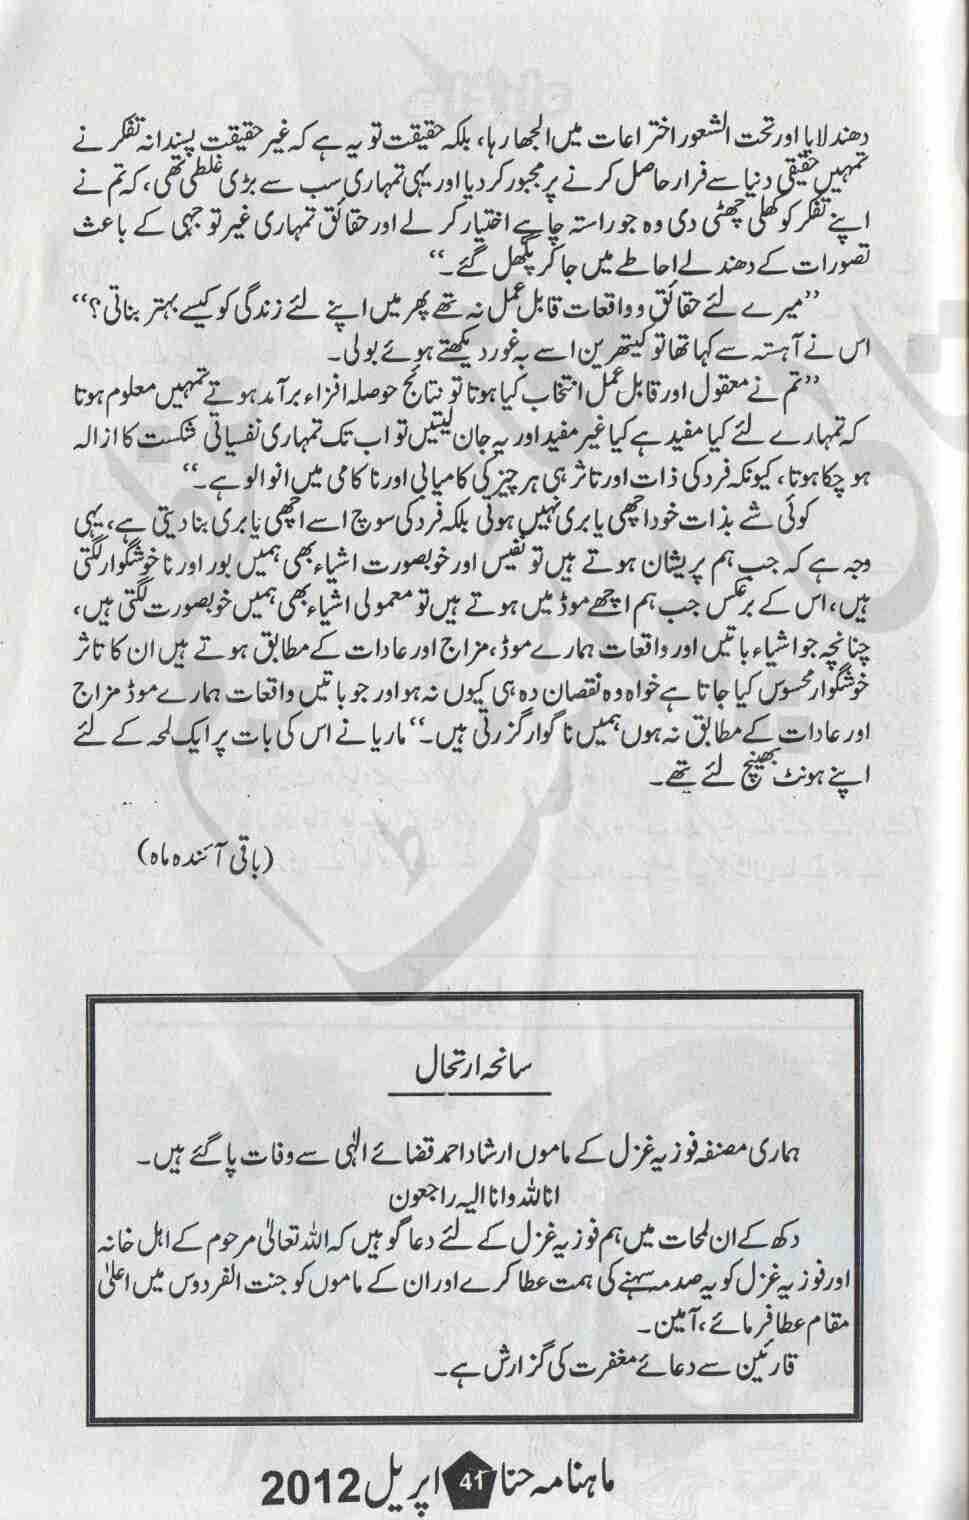 دھندلایا اور تحت الشعور اختراعات میں الجھا رہا، بلکہ حقیقت تو یہ ہے کہ غیر حقیقت پسندانہ تفکر نے
تمہیں حقیقی دنیا سے فرار حاصل کرنے پر مجبور کر دیا اور یہی تمہاری سب سے بڑی غلطی تھی، کہ تم نے
اپنے تفکر کو کھلی چھٹی دی وہ جو راستہ چاہے اختیار کر لے اور حقائق تمہاری غیر توجہی کے باعث
تصورات کے دھندلے احاطے میں جا کر پگھل گئے۔‘‘
’’میرے لئے حقائق و واقعات قابل عمل نہ تھے پھر میں اپنے لئے زندگی کو کیسے بہتر بناتی؟‘‘
اس نے آہستہ سے کہا تھا تو کیتھرین اسے بہ غور دیکھتے ہوئے بولی۔
’’تم نے معقول اور قابل عمل انتخاب کیا ہوتا تو نتائج حوصلہ افزاء برآمد ہوتے تمہیں معلوم ہوتا
کہ تمہارے لئے کیا مفید ہے کیا غیر مفید اور یہ جان لیتیں تو اب تک تمہاری نفسیاتی شکست کا ازالہ
ہو چکا ہوتا، کیونکہ فرد کی ذات اور تاثر ہی ہر چیز کی کامیابی اور ناکامی میں انوالو ہے۔‘‘
کوئی شے بذات خود اچھی یا بری نہیں ہوتی بلکہ فرد کی سوچ اسے اچھی یا بری بنا دیتی ہے، یہی
وجہ ہے کہ جب ہم پریشان ہوتے ہیں تو نفیس اور خوبصورت اشیاء بھی ہمیں بور اور ناخوشگوار لگتی
ہیں، اس کے برعکس جب ہم اچھے موڈ میں ہوتے ہیں تو معمولی اشیاء بھی ہمیں خوبصورت لگتی ہیں،
چنانچہ جو اشیاء باتیں اور واقعات ہمارے موڈ، مزاج اور عادات کے مطابق ہوتے ہیں ان کا تاثر
خوشگوار محسوس کیا جاتا ہے خواہ وہ نقصان دہ ہی کیوں نہ ہو اور جو باتیں واقعات ہمارے موڈ مزاج
اور عادات کے مطابق نہ ہوں ہمیں ناگوار گزرتی ہیں۔‘‘ ماریا نے اس کی بات پر ایک لمحہ کے لئے
اپنے ہونٹ بھینچ لئے تھے۔
(باقی آئندہ ماہ)
سانحہ ارتحال
ہماری مصنفہ فوزیہ غزل کے ماموں ارشاد احمد قضائے الٰہی سے وفات پا گئے ہیں۔
انا للہ وانا الیہ راجعون
دکھ کے ان لمحات میں ہم فوزیہ غزل کے لئے دعا گو ہیں کہ اللہ تعالیٰ مرحوم کے اہل خانہ
اور فوزیہ غزل کو یہ صدمہ سہنے کی ہمت عطا کرے اور ان کے ماموں کو جنت الفردوس میں اعلیٰ
مقام عطا فرمائے، آمین۔
قارئین سے دعائے مغفرت کی گزارش ہے۔
ماہنامہ حنا 41 اپریل 2012